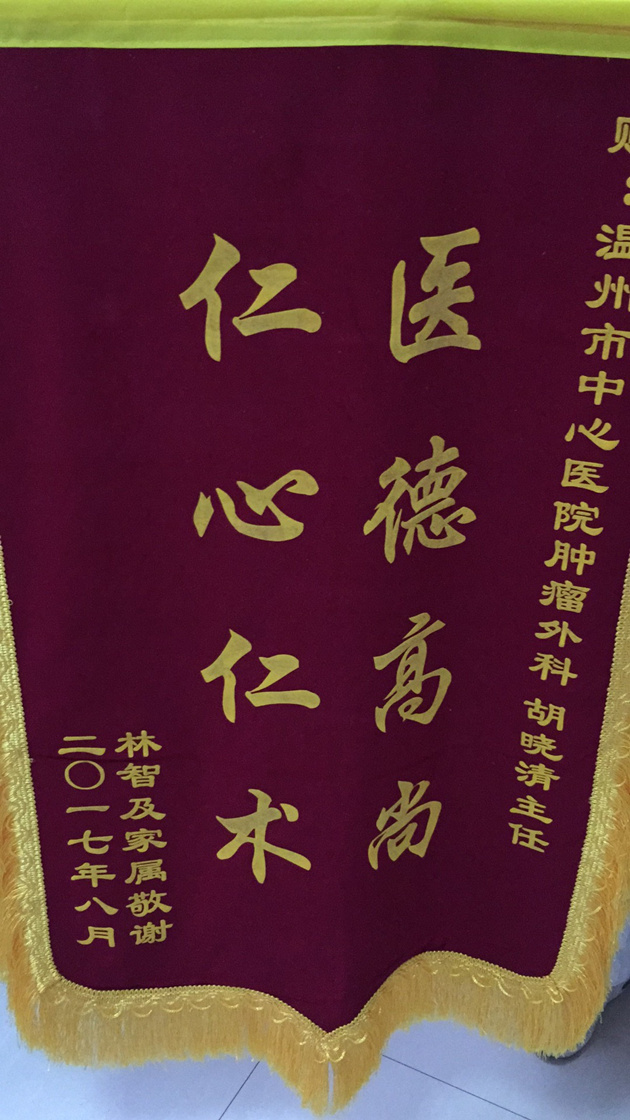 赠：温州市中心医院肿瘤外科 胡晓清主任
医德高尚
仁心仁术
林智及家属敬谢
二〇一七年八月